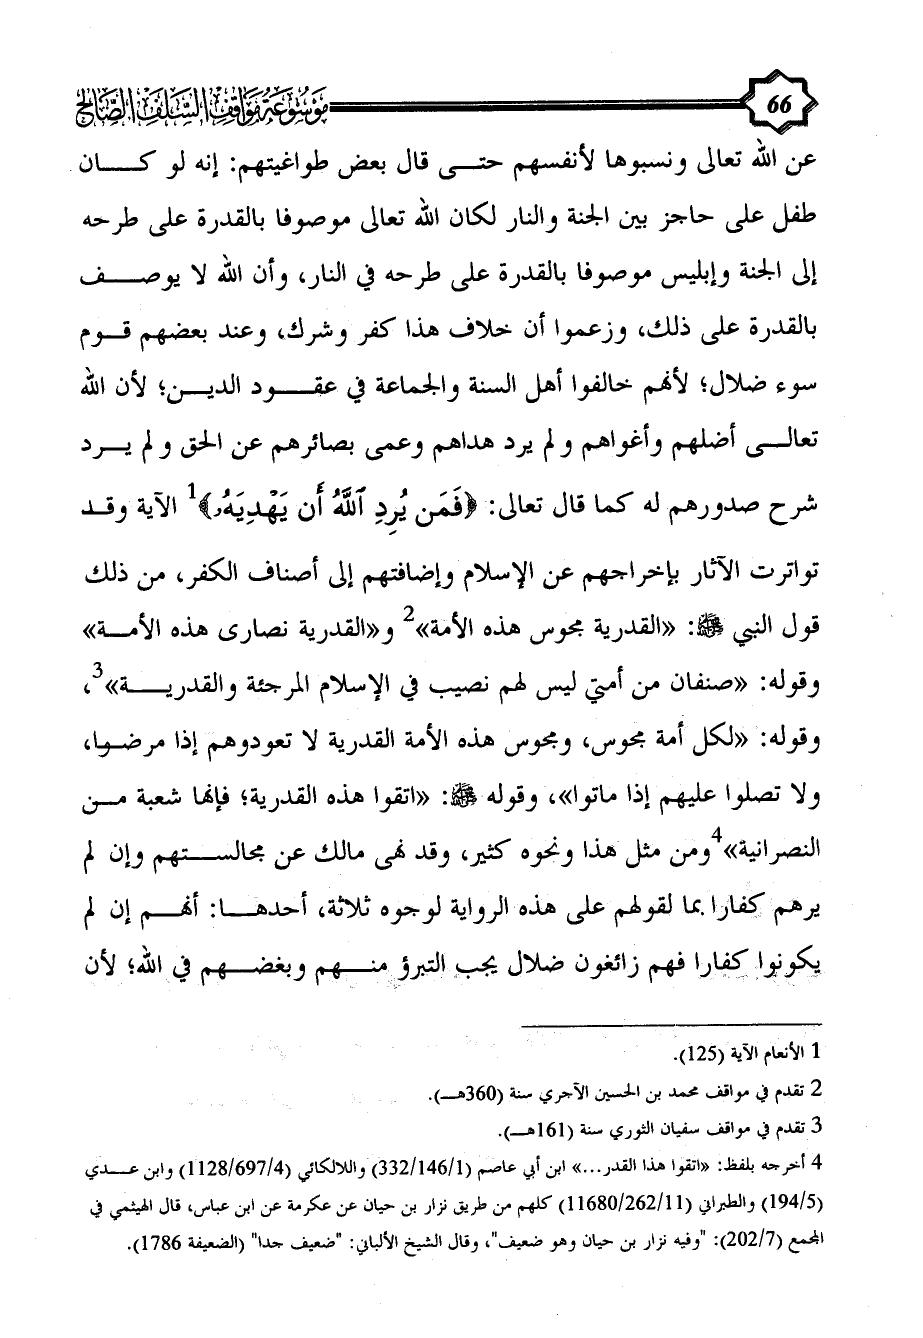 66
موسوعة مواقف السلف الصالح
عن الله تعالى ونسبوها لأنفسهم حتى قال بعض طواغيتهم: إنه لو كان
طفل على حاجز بين الجنة والنار لكان الله تعالى موصوفا بالقدرة على طرحه
إلى الجنة وإبليس موصوفا بالقدرة على طرحه في النار، وأن الله لا يوصف
بالقدرة على ذلك، وزعموا أن خلاف هذا كفر وشرك، وعند بعضهم قوم
سوء ضلال؛ لأنهم خالفوا أهل السنة والجماعة في عقود الدين؛ لأن الله
تعالى أضلهم وأغواهم ولم يرد هداهم وعمى بصائرهم عن الحق ولم يرد
شرح صدورهم له كما قال تعالى: ﴿فَمَن يُرِدِ ٱللَّهُ أَن يَهْدِيَهُۥ﴾1 الآية وقد
تواترت الآثار بإخراجهم عن الإسلام وإضافتهم إلى أصناف الكفر، من ذلك
قول النبي ﷺ: «القدرية مجوس هذه الأمة»2 و«القدرية نصارى هذه الأمة»
وقوله: «صنفان من أمتي ليس لهم نصيب في الإسلام المرجئة والقدرية»3،
وقوله: «لكل أمة مجوس، ومجوس هذه الأمة القدرية لا تعودوهم إذا مرضوا،
ولا تصلوا عليهم إذا ماتوا»، وقوله ﷺ: «اتقوا هذه القدرية؛ فإنها شعبة من
النصرانية»4 ومن مثل هذا ونحوه كثير، وقد نهى مالك عن مجالستهم وإن لم
يرهم كفارا بما لقولهم على هذه الرواية لوجوه ثلاثة، أحدها: أنهم إن لم
يكونوا كفارا فهم زائغون ضلال يجب التبرؤ منهم وبغضهم في الله؛ لأن
1 الأنعام الآية (125).
2 تقدم في مواقف محمد بن الحسين الآجري سنة (360هـ).
3 تقدم في مواقف سفيان الثوري سنة (161هـ).
4 أخرجه بلفظ: «اتقوا هذا القدر...» ابن أبي عاصم (332/146/1) واللالكائي (1128/697/4) وابن عدي
(194/5) والطبراني (11680/262/11) كلهم من طريق نزار بن حيان عن عكرمة عن ابن عباس، قال الهيثمي في
المجمع (202/7): "وفيه نزار بن حيان وهو ضعيف"، وقال الشيخ الألباني: "ضعيف جدا" (الضعيفة 1786).